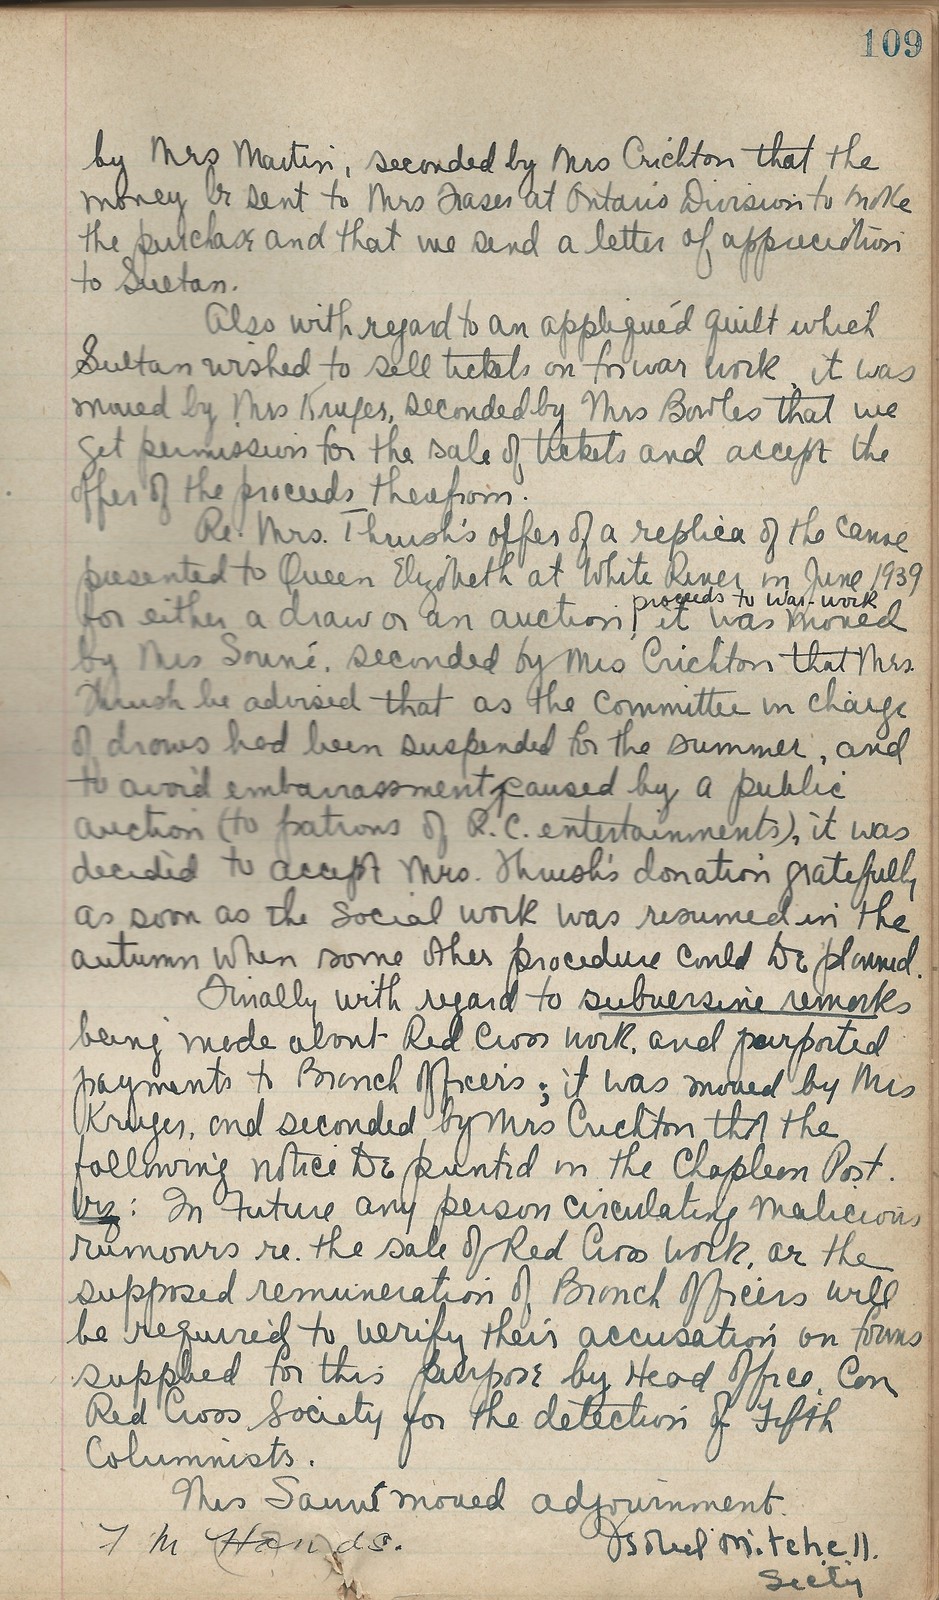 109
by Mrs Martin, seconded by Mrs Crichton that the
money be sent to Mrs Fraser at Ontario Division to make
the purchase and that we send a letter of appreciation
to Sultan.
Also with regard to an appliqué'd quilt which
Sultan wished to sell tickets on for war work, it was
moved by Mrs Kruger, seconded by Mrs Bowles that we
get permission for the sale of tickets and accept the
offer of the proceeds therefrom.
Re. Mrs. Thrush's offer of a replica of the canoe
presented to Queen Elizabeth at White River in June 1939
proceeds to war-work
for either a draw or an auction, it was moved
by Mrs Saunté, seconded by Mrs Crichton that Mrs.
Thrush be advised that as the committee in charge
of draws had been suspended for the summer, and
to avoid embarrassment, caused by a public
auction (to patrons of R.C. entertainments), it was
decided to accept Mrs. Thrush's donation gratefully
as soon as the social work was resumed in the
autumn when some other procedure could be planned.
Finally with regard to subversive remarks
being made about Red Cross work, and purported
payments to Branch Officers; it was moved by Mrs
Kruger, and seconded by Mrs Crichton that the
following notice be printed in the Chapleau Post.
Viz: In Future any person circulating malicious
rumours re. the sale of Red Cross work, or the
supposed remuneration of Branch Officers will
be required to verify their accusation on forms
supplied for this purpose by Head Office, Can
Red Cross Society for the detection of Fifth
Columnists.
Mrs Saunté moved adjournment.
F M Hands. Isobel Mitchell.
Secty